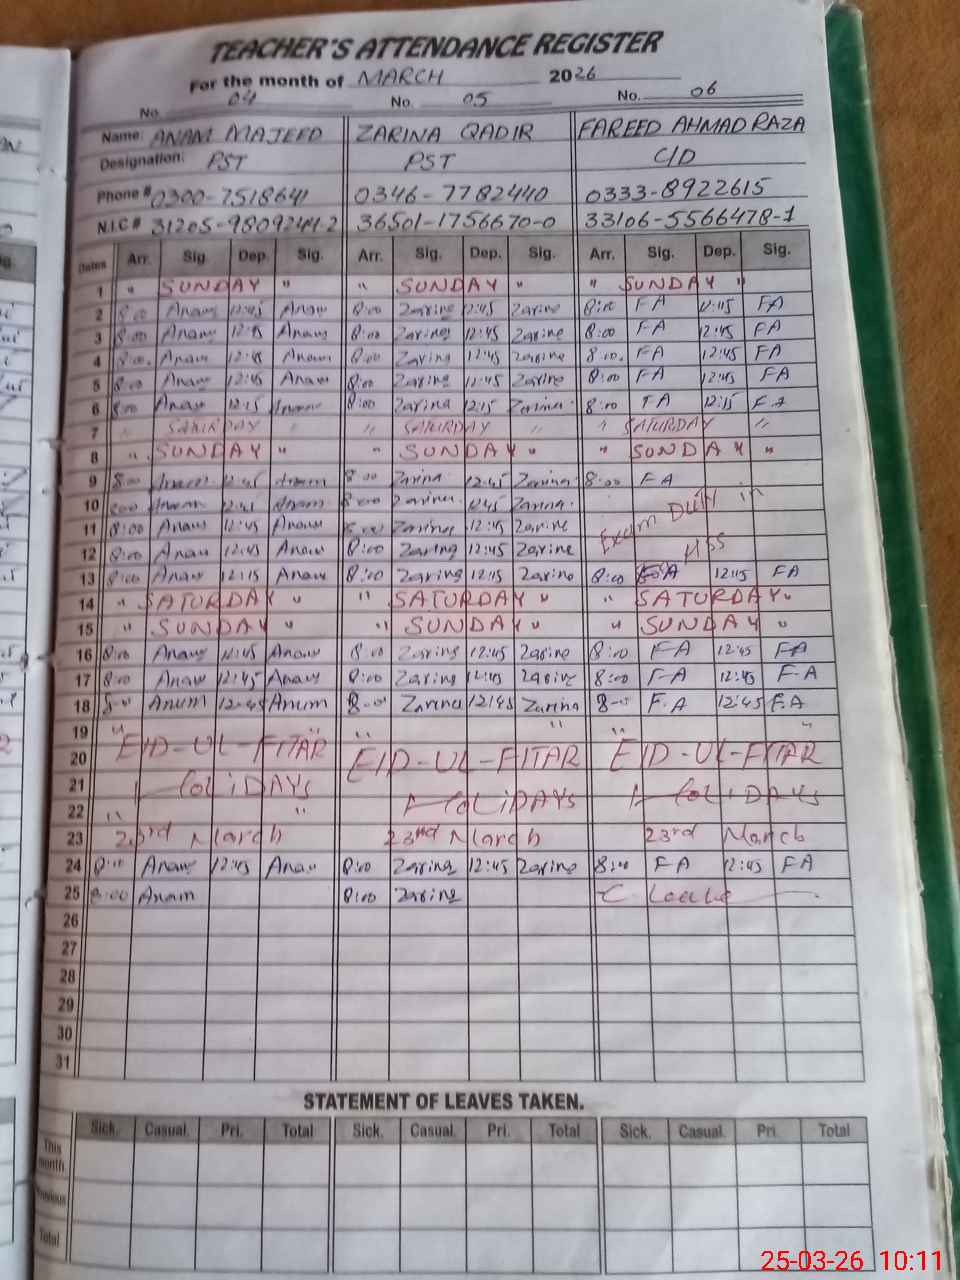 TEACHER'S ATTENDANCE REGISTER
For the month of MARCH 2026
No. 04 No. 05 No. 06
Name: ANAM MAJEED ZARINA QADIR FAREED AHMAD RAZA
Designation: PST PST C/D
Phone # 0300-7518641 0346-7782440 0333-8922615
N.I.C # 31205-9809244-2 36501-1756670-0 33106-5566478-1
Dates Arr. Sig. Dep. Sig. Arr. Sig. Dep. Sig. Arr. Sig. Dep. Sig.
1 " SUNDAY " " SUNDAY " " SUNDAY "
2 8:00 Anam 12:45 Anam 8:00 Zarina 12:45 Zarina 8:00 FA 12:45 FA
3 8:00 Anam 12:45 Anam 8:00 Zarina 12:45 Zarina 8:00 FA 12:45 FA
4 8:00 Anam 12:45 Anam 8:00 Zarina 12:45 Zarina 8:00 FA 12:45 FA
5 8:00 Anam 12:45 Anam 8:00 Zarina 12:45 Zarina 8:00 FA 12:45 FA
6 8:00 Anam 12:15 Anam 8:00 Zarina 12:15 Zarina 8:00 FA 12:15 FA
7 " SATURDAY " " SATURDAY " " SATURDAY "
8 " SUNDAY " " SUNDAY " " SUNDAY "
9 8:00 Anam 12:45 Anam 8:00 Zarina 12:45 Zarina 8:00 FA
10 8:00 Anam 12:45 Anam 8:00 Zarina 12:45 Zarina
11 8:00 Anam 12:45 Anam 8:00 Zarina 12:45 Zarina Exam Duty in
12 8:00 Anam 12:45 Anam 8:00 Zarina 12:45 Zarina HSS
13 8:00 Anam 12:15 Anam 8:00 Zarina 12:15 Zarina 8:00 FA 12:15 FA
14 " SATURDAY " " SATURDAY " " SATURDAY "
15 " SUNDAY " " SUNDAY " " SUNDAY "
16 8:00 Anam 12:45 Anam 8:00 Zarina 12:45 Zarina 8:00 FA 12:45 FA
17 8:00 Anam 12:45 Anam 8:00 Zarina 12:45 Zarina 8:00 FA 12:45 F.A
18 8-00 Anum 12:45 Anum 8-00 Zarina 12:45 Zarina 8-00 F.A 12:45 F.A
19 " " " " "
20 EID-UL-FITAR EID-UL-FITAR EID-UL-FITAR
21 HoLiDAYs HoLiDAYs HoLiDAYs
22 " "
23 23rd March 23rd March 23rd March
24 8:00 Anam 12:45 Anam 8:00 Zarina 12:45 Zarina 8:00 FA 12:45 FA
25 8:00 Anam 8:00 Zarina C Leave
26
27
28
29
30
31
STATEMENT OF LEAVES TAKEN.
Sick. Casual. Pri. Total Sick. Casual. Pri. Total Sick. Casual. Pri. Total
This month
Previous
Total
25-03-26 10:11